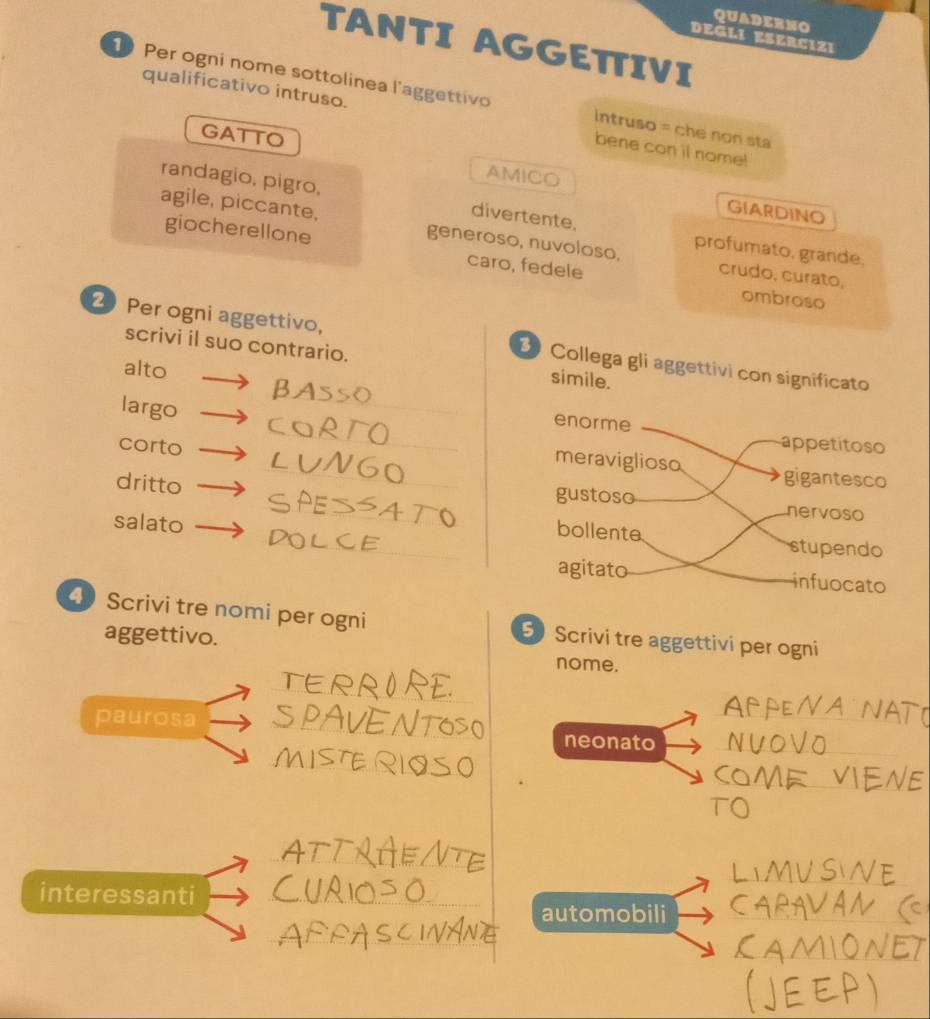 TANTI AGGETTIVI
QUADERNO
DEGLI ESERCIZI
1 Per ogni nome sottolinea l'aggettivo
qualificativo intruso.
intruso = che non sta
bene con il nome!
GATTO
randagio, pigro,
agile, piccante,
giocherellone
AMICO
divertente,
generoso, nuvoloso,
caro, fedele
GIARDINO
profumato, grande,
crudo, curato,
ombroso
2 Per ogni aggettivo,
scrivi il suo contrario.
alto BASSO
largo CORTO
corto LUNGO
dritto SPESSATO
salato DOLCE
3 Collega gli aggettivi con significato
simile.
enorme
meraviglioso
gustoso
bollente
agitato
appetitoso
gigantesco
nervoso
stupendo
infuocato
4 Scrivi tre nomi per ogni
aggettivo.
paurosa
TERRORE.
SPAVENTOSO
MISTERIOSO
interessanti
ATTRAENTE
CURIOSO
AFFASCINANTE
5 Scrivi tre aggettivi per ogni
nome.
neonato
APPENA NATO
NUOVO
COME VIENE
TO
automobili
LIMUSINE
CARAVAN
CAMIONET
(JEEP)